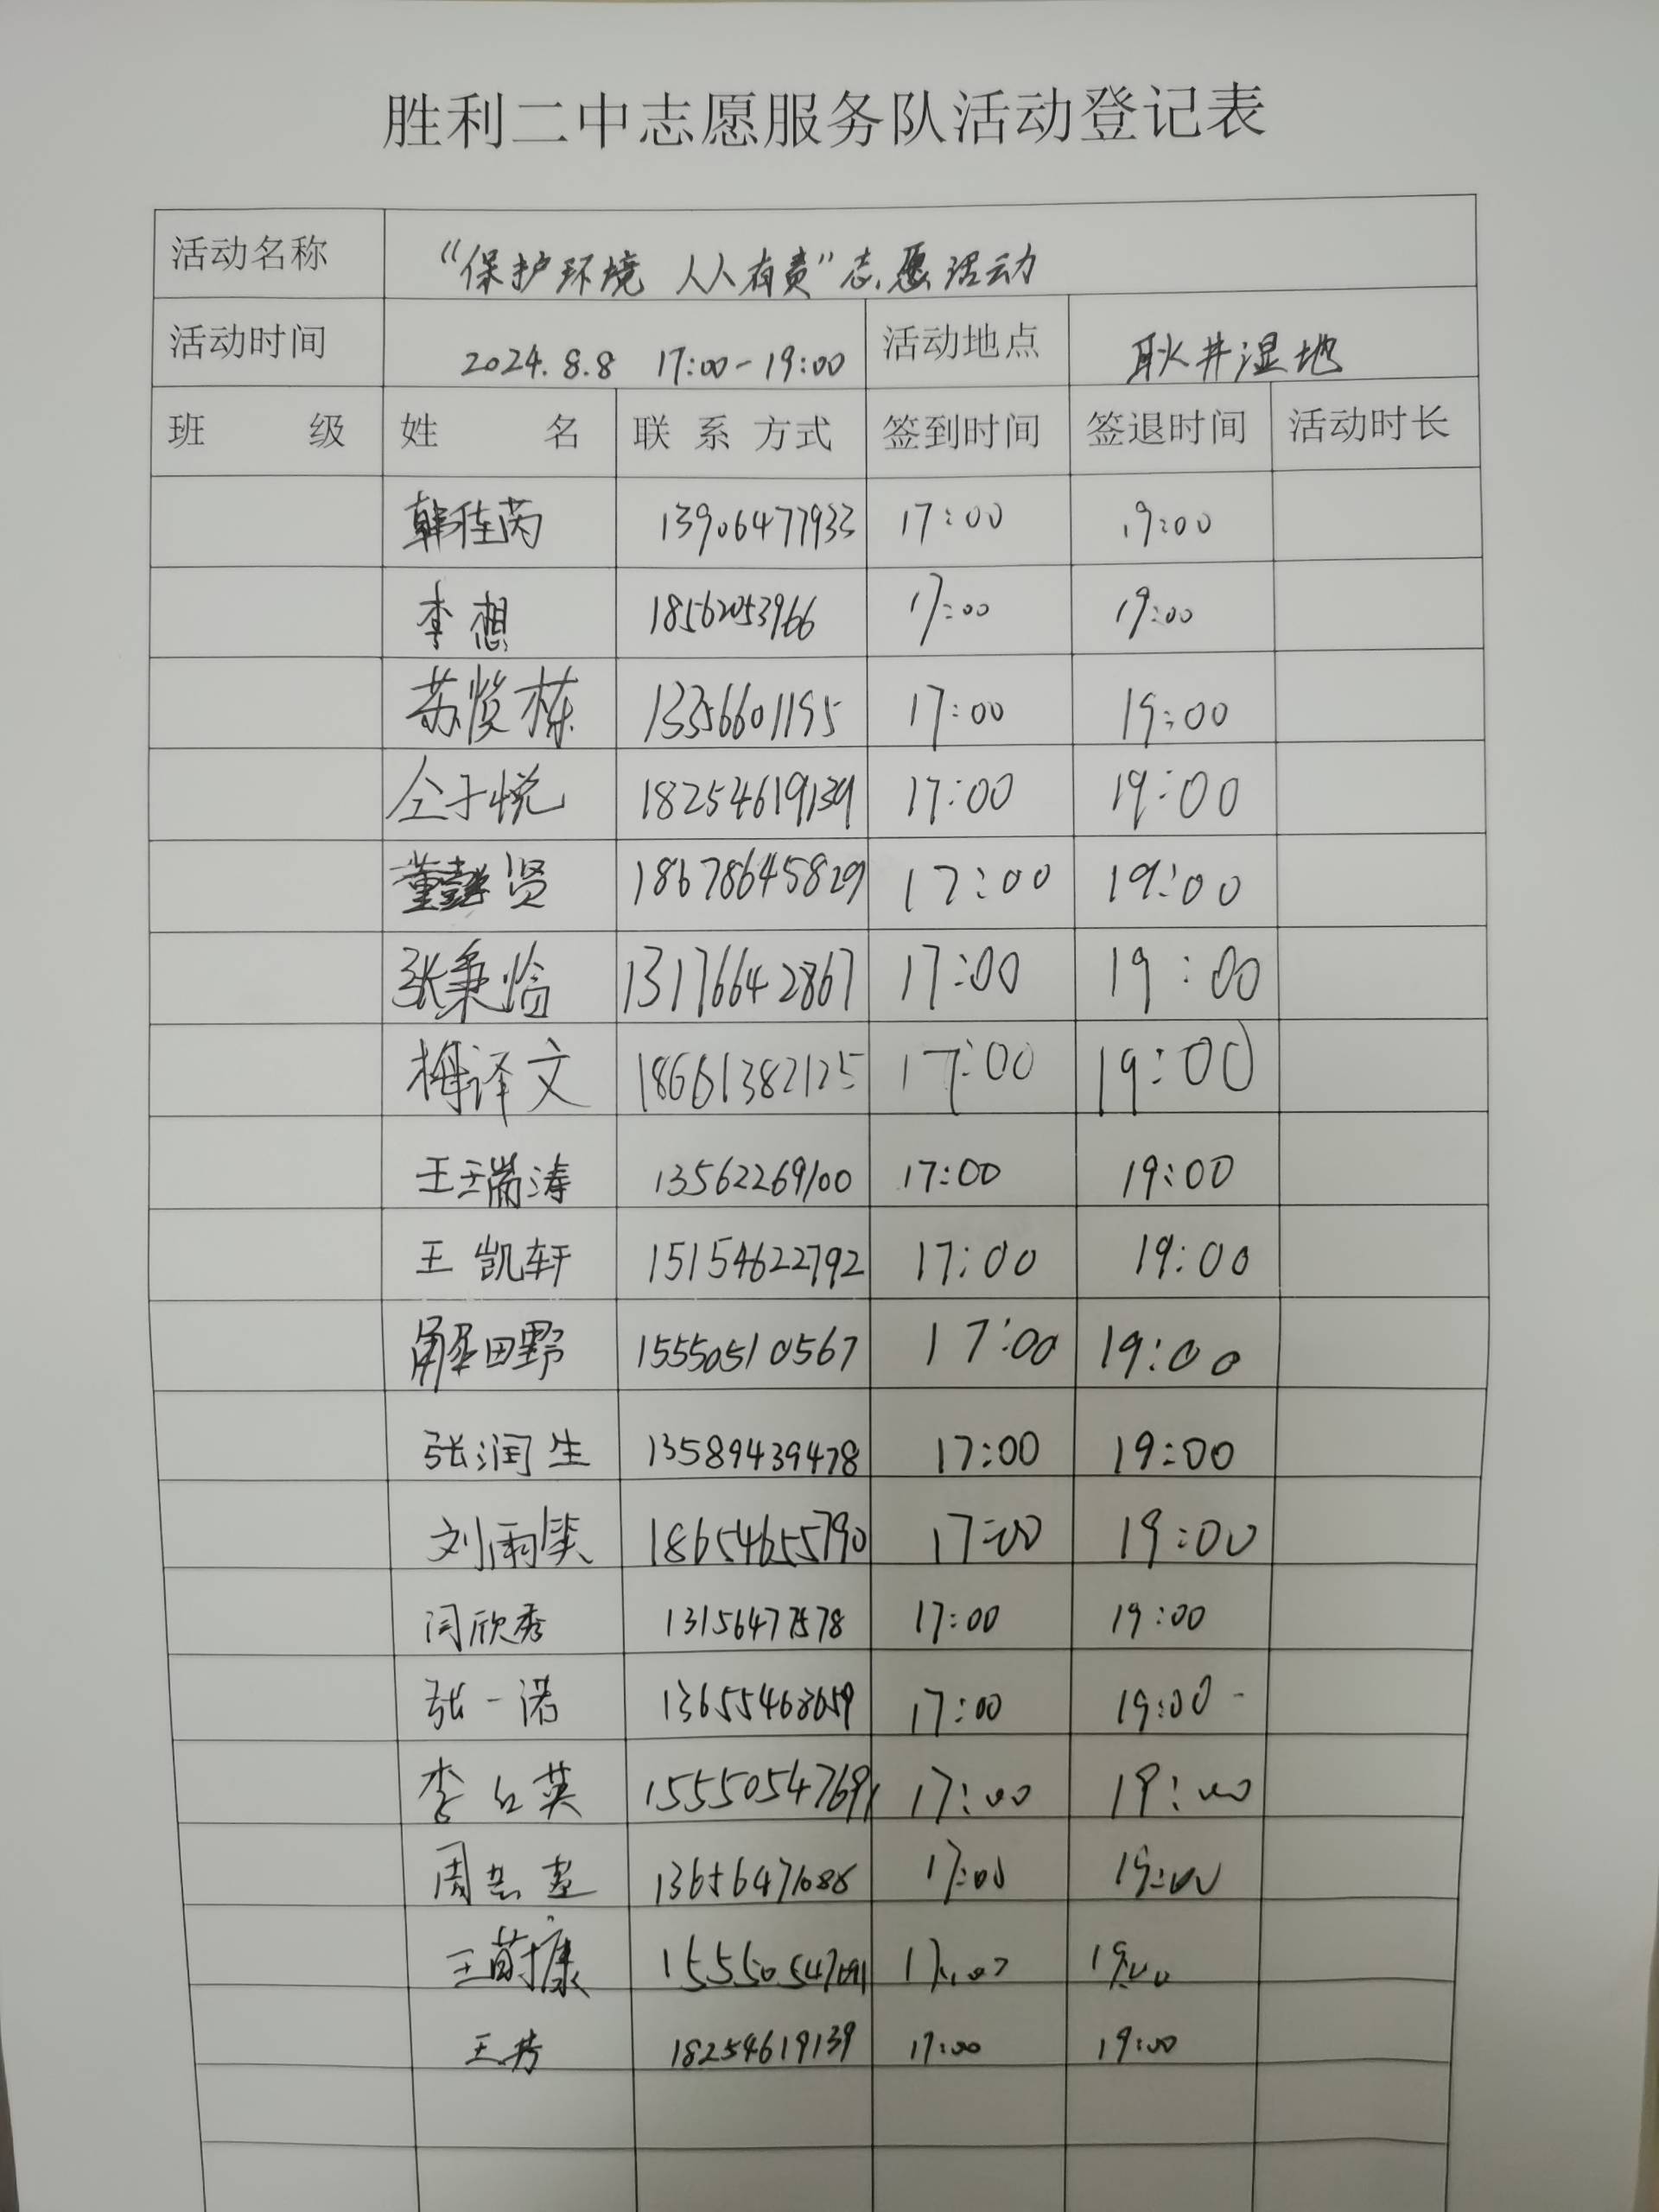 胜利二中志愿服务队活动登记表
活动名称 “保护环境 人人有责”志愿活动
活动时间 2024.8.8 17:00-19:00 活动地点 耿井湿地
班 级 姓 名 联系方式 签到时间 签退时间 活动时长
韩佳芮 13906477933 17:00 19:00
李想 18562053966 17:00 19:00
苏贤栋 13356601195 17:00 19:00
仝于悦 18254619139 17:00 19:00
董懿贤 18678645829 17:00 19:00
张秉恰 13176642867 17:00 19:00
梅译文 18661382125 17:00 19:00
王瑞涛 13562269100 17:00 19:00
王凯轩 15154622792 17:00 19:00
解田野 15550510567 17:00 19:00
张润生 13589439478 17:00 19:00
刘雨笑 18654655790 17:00 19:00
闫欣秀 13156477578 17:00 19:00
张一诺 13655463659 17:00 19:00
李红英 15550547691 17:00 19:00
周 17:00 19:00
王荀康 15550547691 17:00 19:00
王芳 18254619139 17:00 19:00